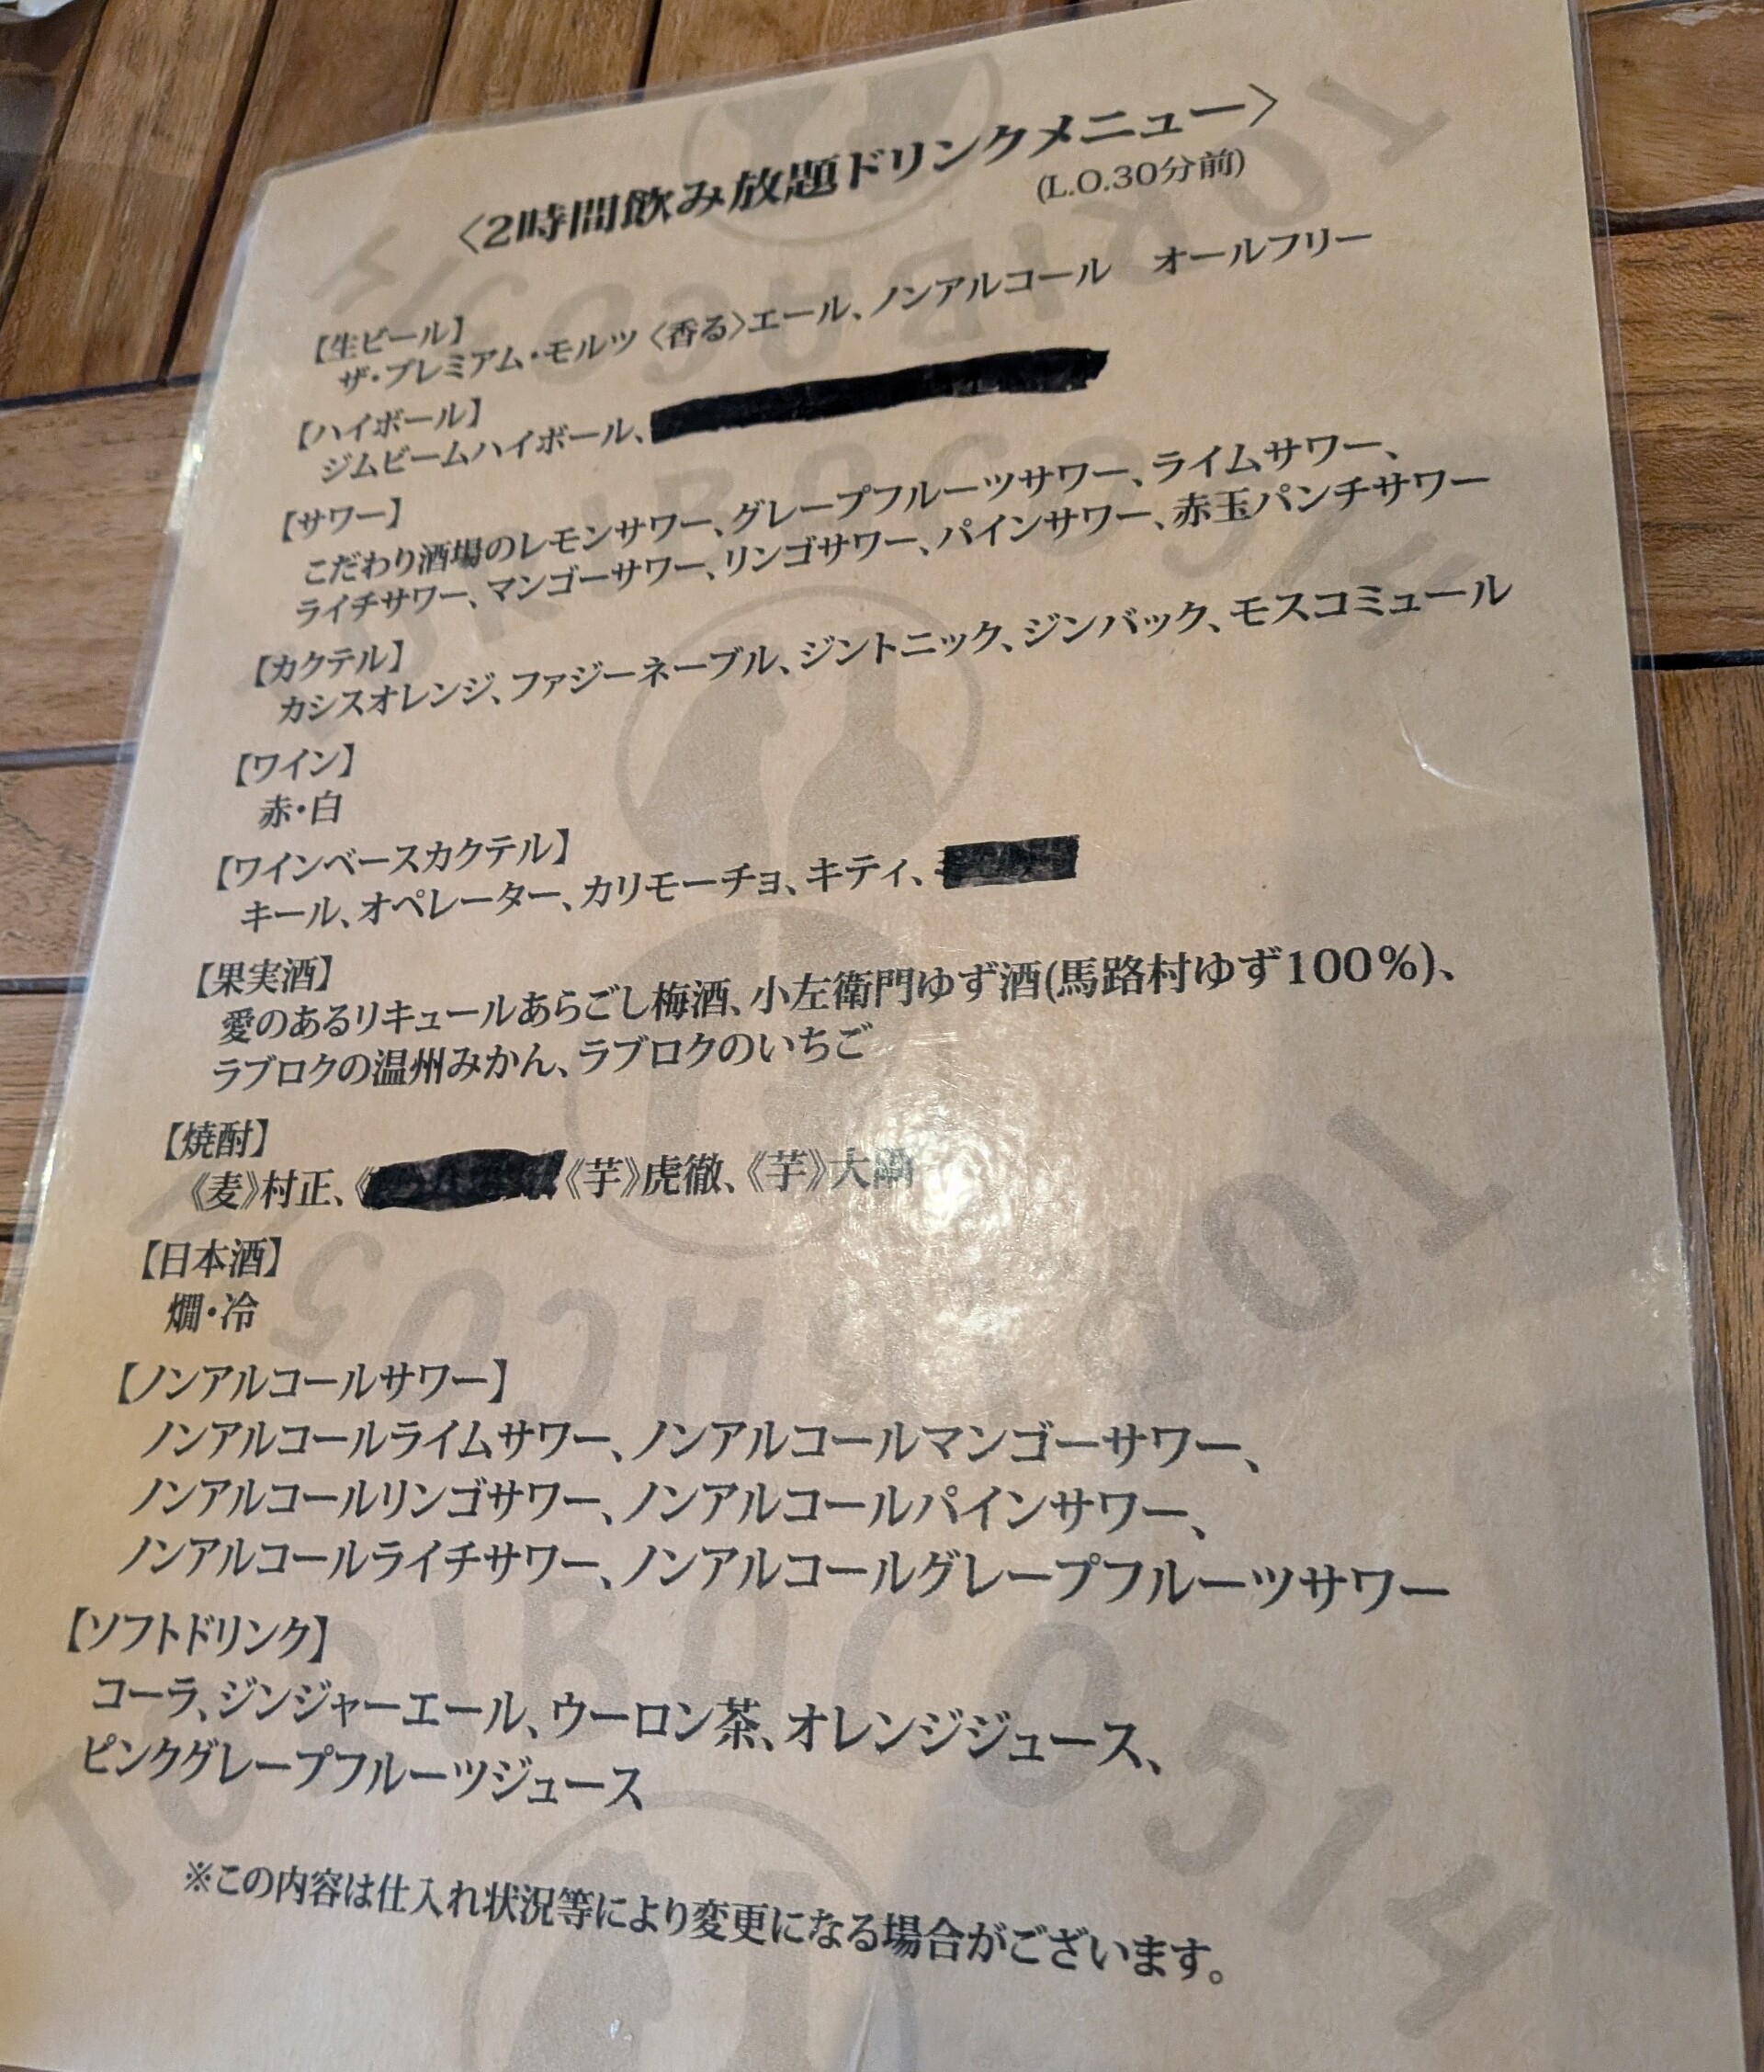 〈2時間飲み放題ドリンクメニュー〉
(L.O.30分前)
【生ビール】
ザ・プレミアム・モルツ〈香る〉エール、ノンアルコール　オールフリー
【ハイボール】
ジムビームハイボール、
【サワー】
こだわり酒場のレモンサワー、グレープフルーツサワー、ライムサワー、
ライチサワー、マンゴーサワー、リンゴサワー、パインサワー、赤玉パンチサワー
【カクテル】
カシスオレンジ、ファジーネーブル、ジントニック、ジンバック、モスコミュール
【ワイン】
赤・白
【ワインベースカクテル】
キール、オペレーター、カリモーチョ、キティ、
【果実酒】
愛のあるリキュールあらごし梅酒、小左衛門ゆず酒(馬路村ゆず100%)、
ラブロクの温州みかん、ラブロクのいちご
【焼酎】
《麦》村正、《芋》虎徹、《芋》大
【日本酒】
燗・冷
【ノンアルコールサワー】
ノンアルコールライムサワー、ノンアルコールマンゴーサワー、
ノンアルコールリンゴサワー、ノンアルコールパインサワー、
ノンアルコールライチサワー、ノンアルコールグレープフルーツサワー
【ソフトドリンク】
コーラ、ジンジャーエール、ウーロン茶、オレンジジュース、
ピンクグレープフルーツジュース
※この内容は仕入れ状況等により変更になる場合がございます。